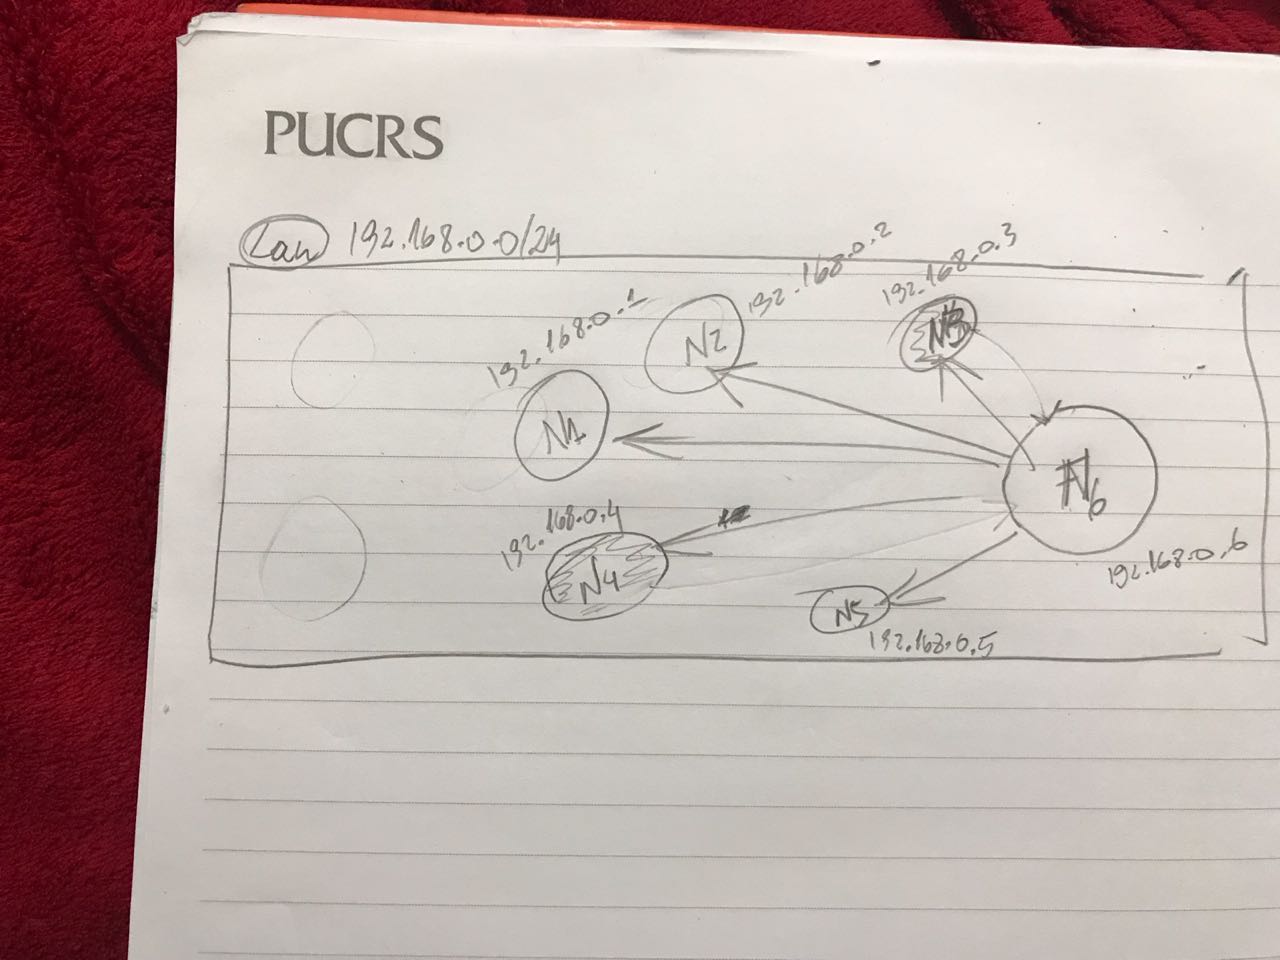 PUCRS
Lan 192.168.0.0/24
192.168.0.1
N1
192.168.0.2
N2
192.168.0.3
N3
192.168.0.4
N4
N5
192.168.0.5
N6
192.168.0.6